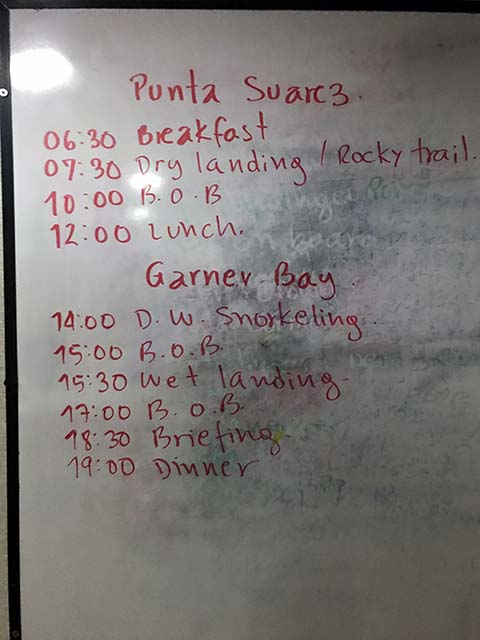 Punta Suarez.
06:30 Breakfast
07:30 Dry landing / Rocky trail.
10:00 B.O.B
12:00 Lunch.
Garner Bay.
14:00 D.W. Snorkeling.
15:00 B.O.B.
15:30 Wet landing-
17:00 B.O.B.
18:30 Briefing.
19:00 Dinner